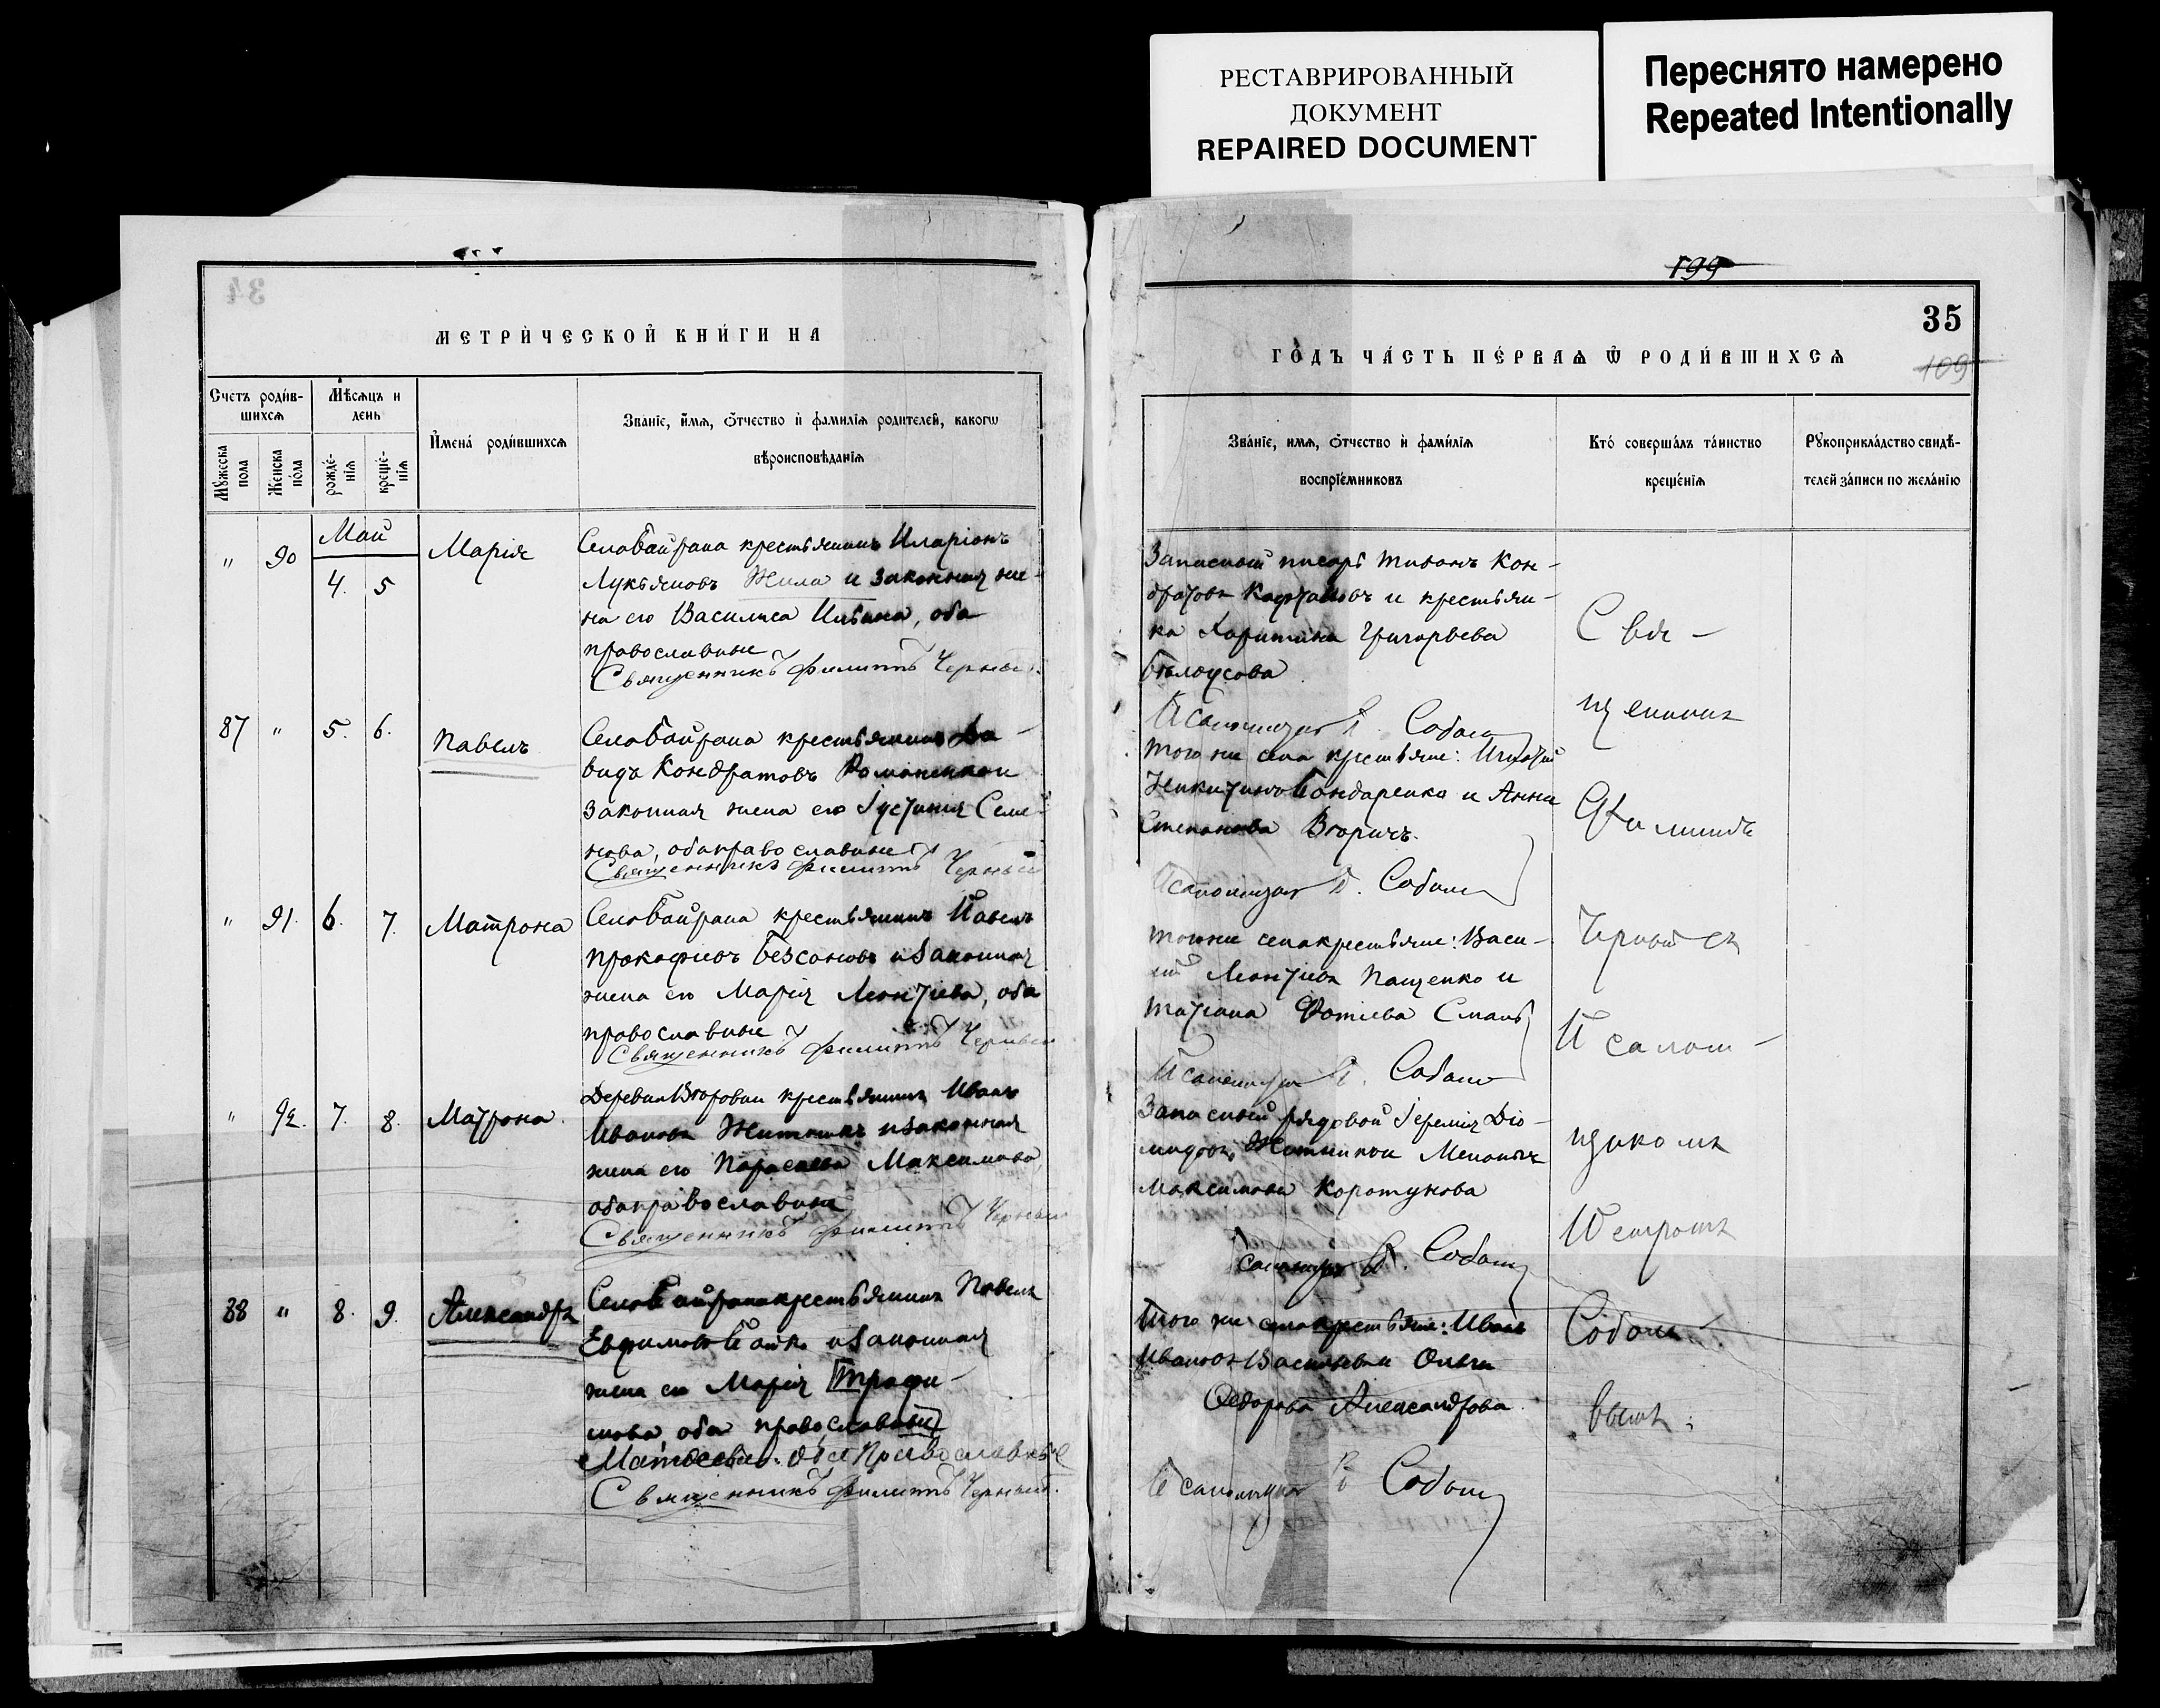 РЕСТАВРИРОВАННЫЙ
ДОКУМЕНТ
REPAIRED DOCUMENT
Переснято намерено
Repeated Intentionally
34
МЕТРИ́ЧЕСКОЙ КНИ́ГИ НА
Счетъ роди́в-
шихсѧ
Мѣсѧцъ и
день
И҆мена́ роди́вшихсѧ
Зва́нїе, и҆́мѧ, ѻ҆́тчество и҆ фамилїѧ родителей, какогѡ
вѣроисповѣданїѧ
Мꙋ́жеска
пола
Же́нска
по́ла
рожде́-
нїѧ
креще́-
нїѧ
Май
" 90 4. 5 Марія
Села Байрака крестьянинъ Иларіонъ
Лукьяновъ Жила и законная же-
на его Василиса Ильина, оба
православные
Священникъ Филиппъ Черный.
87 " 5. 6. Павелъ
Села Байрака крестьянинъ Да-
видъ Кондратовъ Романенко и
законная жена его Іустинія Семе-
нова, оба православные
Священникъ Филиппъ Черный
" 91. 6. 7. Матрона
Села Байрака крестьянинъ Павелъ
Прокофіевъ Безсоновъ и законная
жена его Марія Леонтіева, оба
православные
Священникъ Филиппъ Черный
" 92. 7. 8. Матрона
Деревни крестьянинъ Иванъ
Ивановъ Житникъ и законная
жена его Параскева Максимова,
оба православные
Священникъ Филиппъ Черный
88 " 8. 9. Александръ
Села Байрака крестьянинъ Павелъ
Евфимовъ и законная
жена его Марія Трофи-
мова, оба православные
Матѳеева. Оба Православные
Священникъ Филиппъ Черный.
199
35
109
ГО́ДЪ ЧА́СТЬ ПЕ́РВАѦ Ѿ РОДИ́ВШИХСѦ
Зва́нїе, имѧ, ѻ҆́тчество и҆ фами́лїѧ
воспрїе́мниковъ
Кто́ соверша́лъ та́инство
креще́нїѧ
Рꙋкоприкла́дство свидѣ́-
телей за́писи по жела́нїю
Запасный писарь Кон-
дратовъ и крестьян-
ка Харитина Григорьева
Бѣлоусова
Псаломщикъ П. Собол
Того же села крестьяне: Игнатій
Никитинъ Бондаренко и Анна
Степанова
Псаломщикъ П. Собол
Того же села крестьяне: Васи-
лій Леонтіевъ Пащенко и
Татіана Фотіева
Псаломщикъ П. Собол
Запасный рядовой Іеремія Діо-
мидовъ Житникъ и Меланія
Максимова Коротунова
Псаломщикъ П. Собол
Того же села крестьяне: Иванъ
Ивановъ и Ольга
Ѳедорова Александрова
Псаломщикъ П Собол
Свя-
щенникъ
Филиппъ
Черный съ
Псалом-
щикомъ
Петромъ
Соболе-
вымъ.